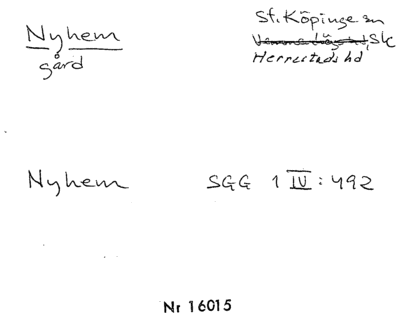 Nyhem
gård
St. Köpinge sn
Vemmenhögs hd, Sk
Herrestads hd
Nyhem SGG 1 IV: 492
Nr 16015